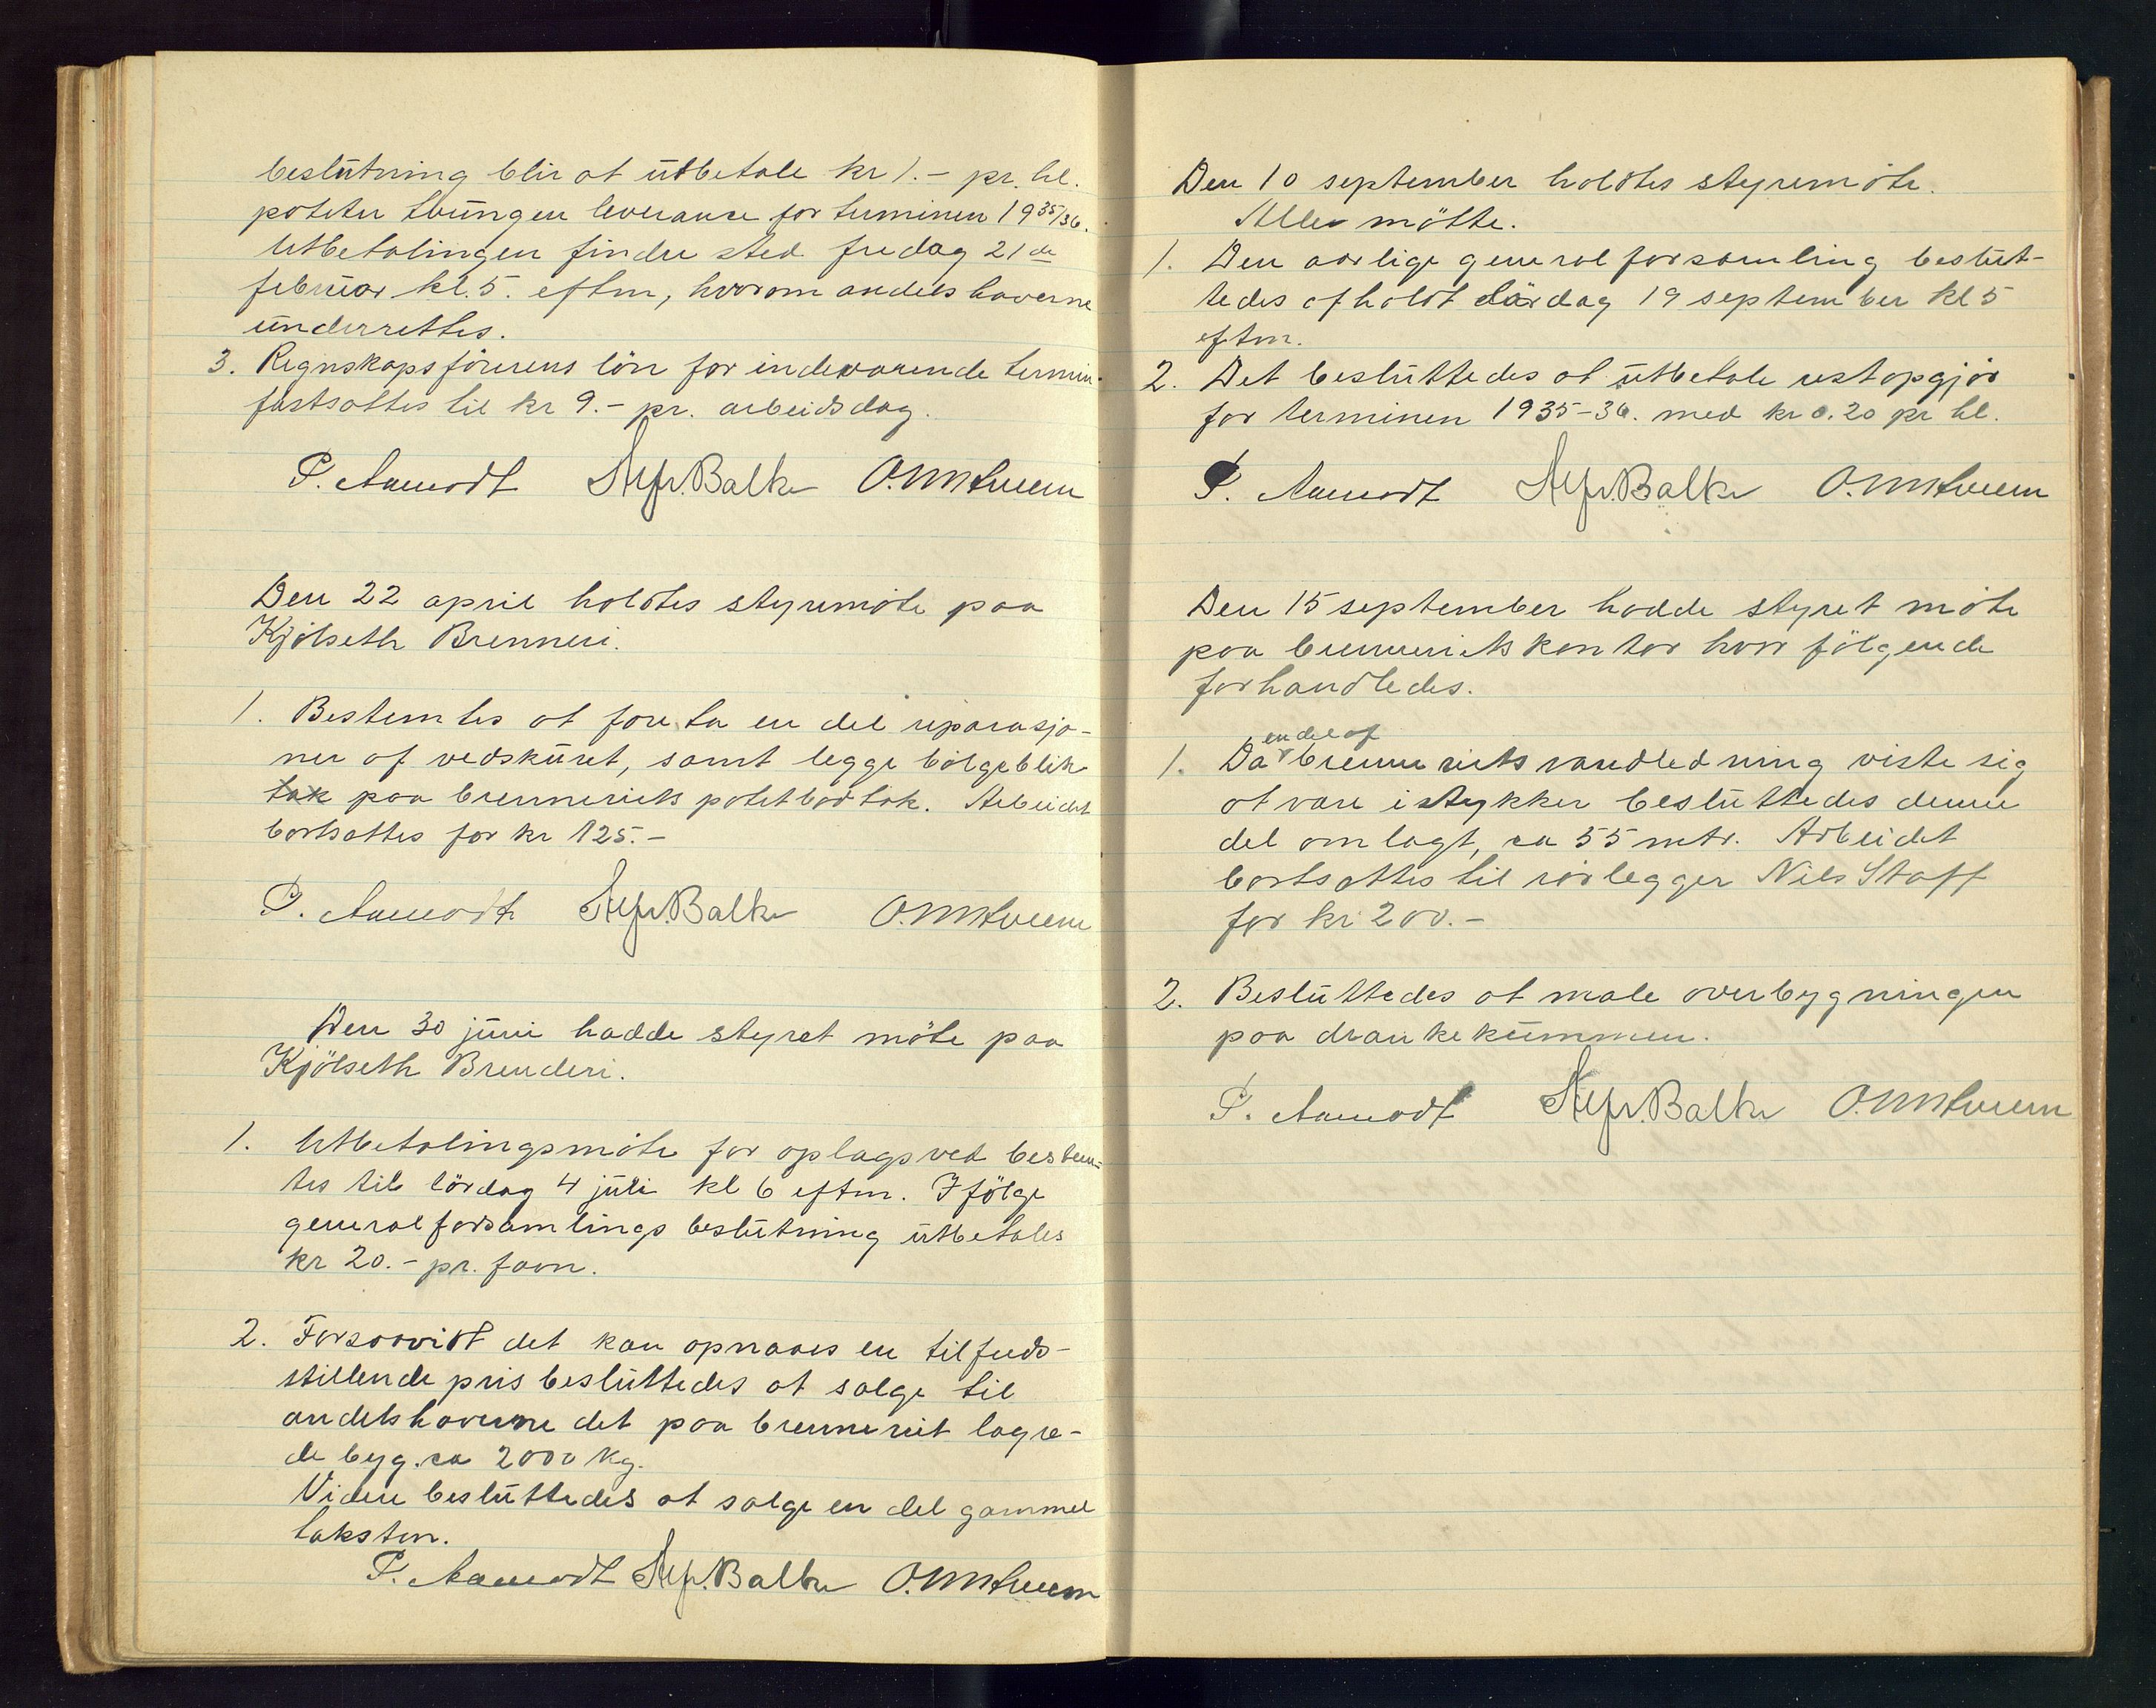 beslutning blir at utbetale kr 1.- pr. hl.
poteter tvungen leveranse for terminen 1935/36.
Utbetalingen finder sted fredag 21de
februar kl. 5. eftm, hvorom andelshaverne
underrettes.
3. Regnskapsförerens lön for indeværende termin
fastsattes til kr 9.- pr. arbeidsdag.
P. Aamodt Alfr. Balke
Den 22 april holdtes styremöte paa
Kjölseth Brenneri.
1. Bestemtes at foreta en del reparasjo-
ner af vedskuret, samt legge bölgeblik
tak paa brenneriets potetbod tak. Arbeidet
bortsattes for kr 125.-
P. Aamodt Alfr. Balke
Den 30 juni hadde styret möte paa
Kjölseth Brenderi.
1. Utbetalingsmöte for oplagsved bestem-
tes til lördag 4 juli kl 6 eftm. Ifölge
generalforsamlings beslutning utbetales
kr 20.- pr. favn.
2. Forsaavidt det kan opnaaes en tilfreds-
stillende pris besluttedes at sælge til
andelshaverne det paa brenneriet lagre-
de byg. ca 2000 kg.
Videre besluttedes at sælge en del gammel
taksten.
P. Aamodt Alfr. Balke
Den 10 september holdtes styremöte.
Alle mötte.
1. Den aarlige generalforsamling beslut-
tedes afholdt lördag 19 september kl 5
eftm.
2. Det besluttedes at utbetale restopgjör
for terminen 1935-36. med kr 0.20 pr hl.
P. Aamodt Alfr. Balke
Den 15 september hadde styret möte
paa brenneriets kontor hvor fölgende
forhandledes.
en del af
1. Da brenneriets vandledning viste sig
at være istykker besluttedes denne
del omlagt, ca 55 mtr. Arbeidet
bortsattes til rörlegger Nils Staff
for kr 200.-
2. Besluttedes at male overbygningen
paa drankekummen.
P. Aamodt Alfr. Balke